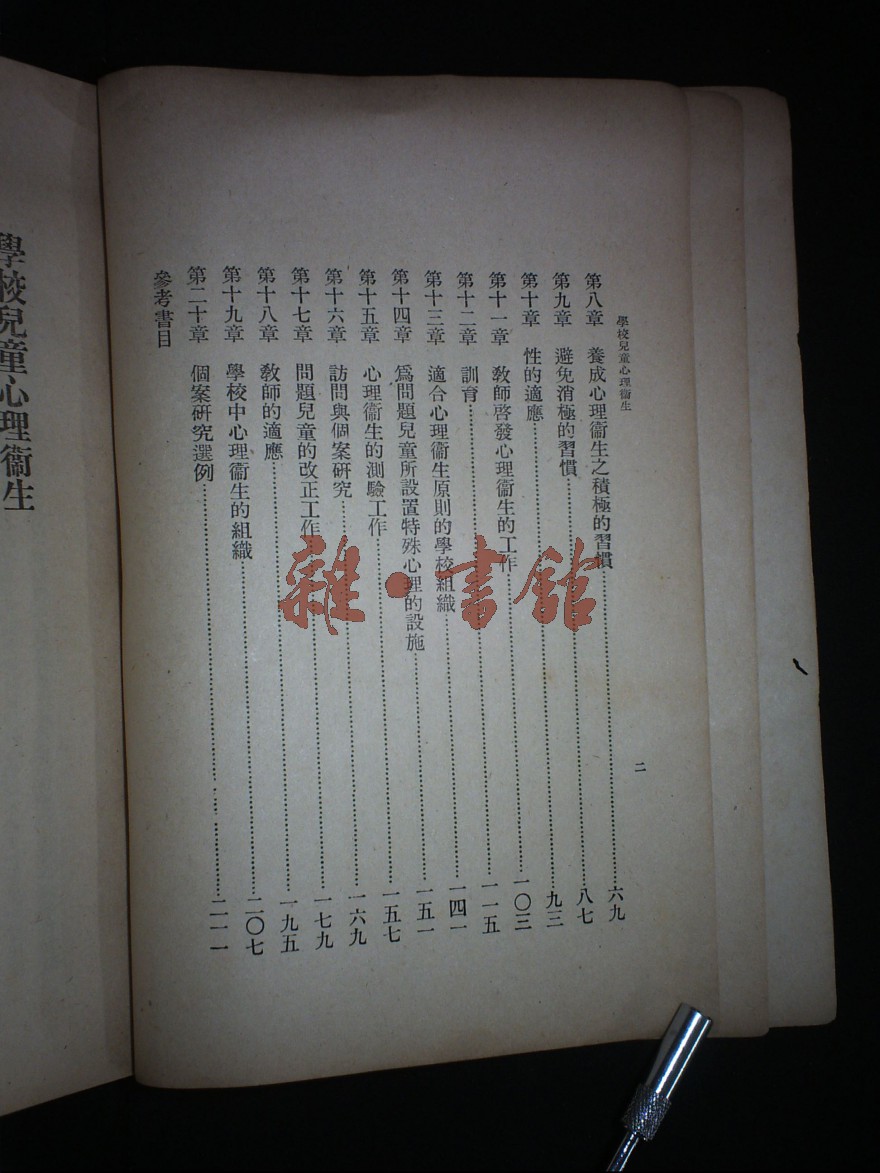 學校兒童心理衞生
二
第八章　養成心理衞生之積極的習慣……六九
第九章　避免消極的習慣……八七
第十章　性的適應……九三
第十一章　教師啓發心理衞生的工作……一〇三
第十二章　訓育……一一五
第十三章　適合心理衞生原則的學校組織……一四一
第十四章　爲問題兒童所設置特殊心理的設施……一五一
第十五章　心理衞生的測驗工作……一五七
第十六章　訪問與個案研究……一六九
第十七章　問題兒童的改正工作……一七九
第十八章　教師的適應……一九五
第十九章　學校中心理衞生的組織……二〇七
第二十章　個案研究選例……二一一
參考書目
學校兒童心理衞生
雜·書館